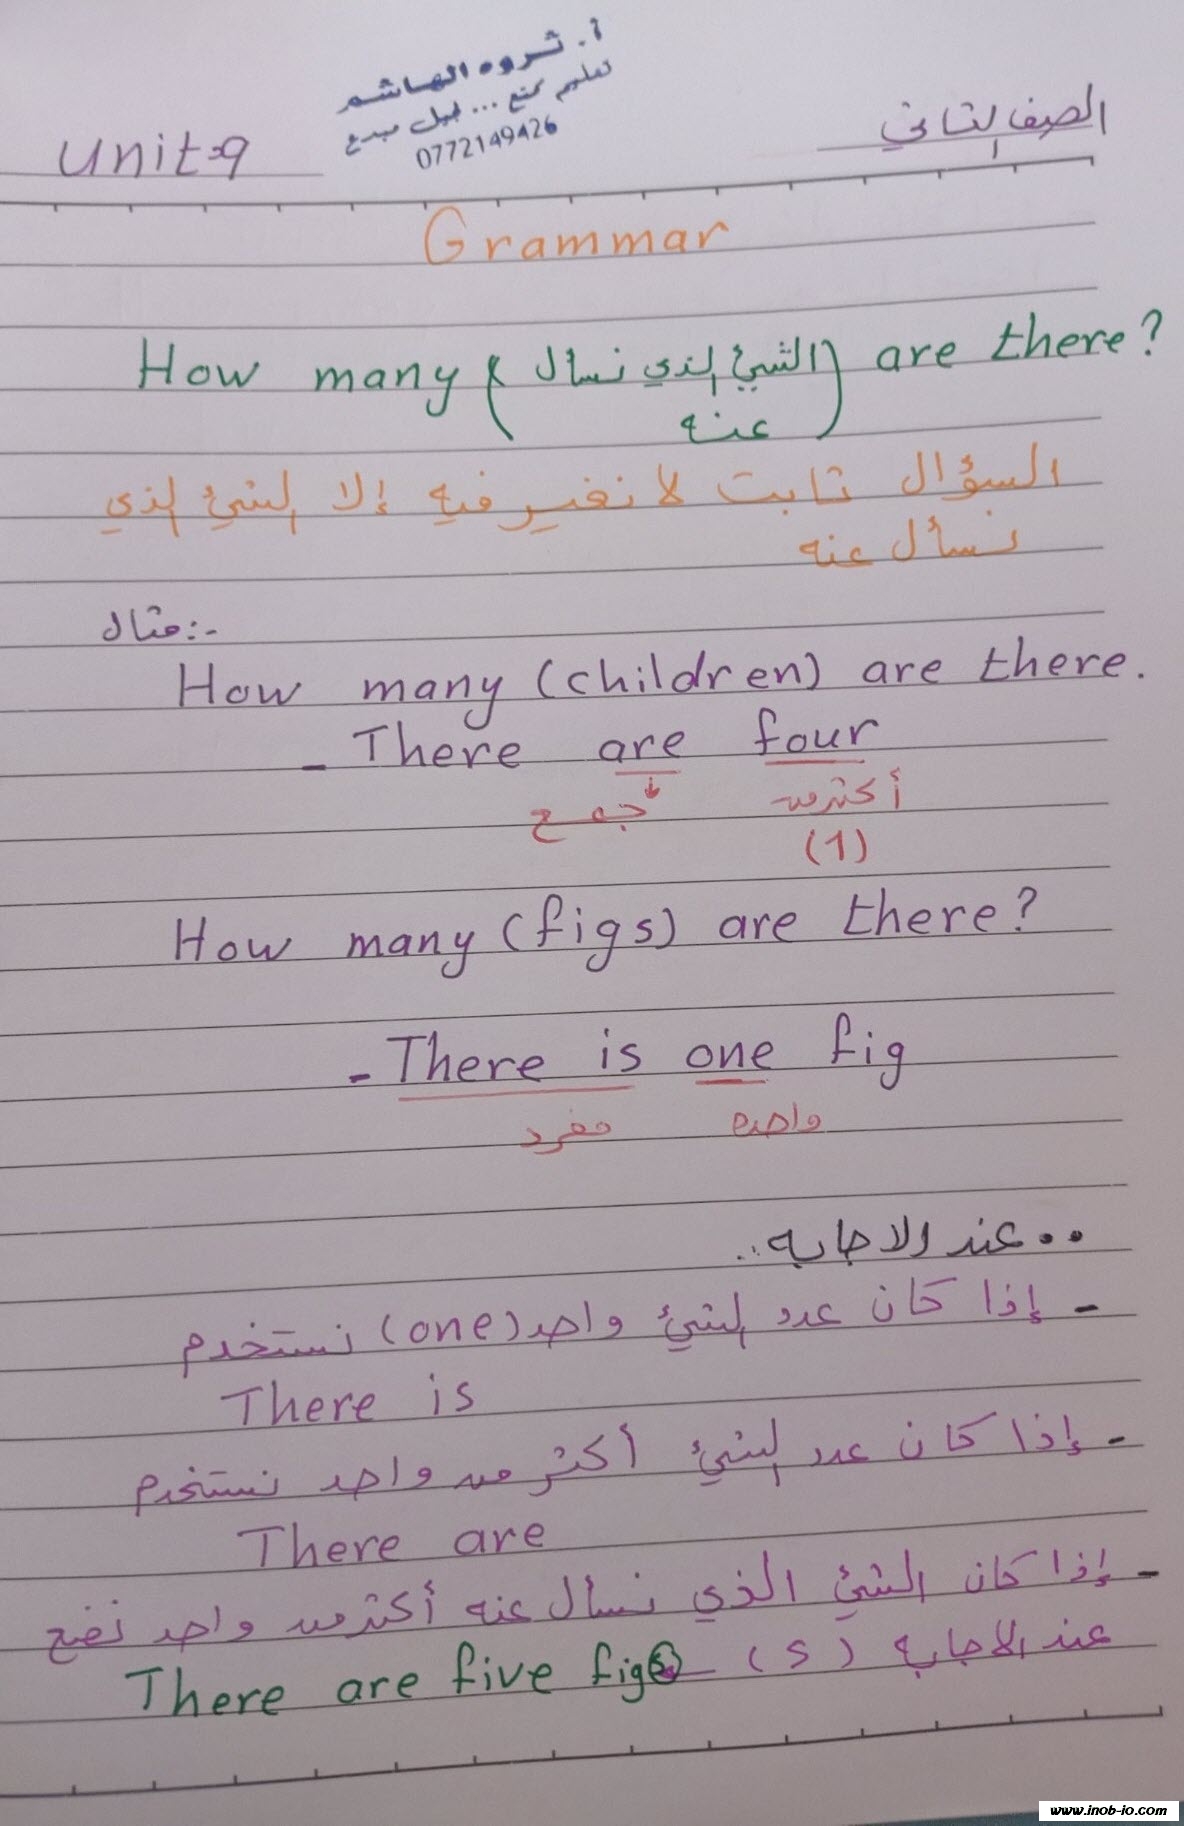 أ. ثروه الهاشم
تعليم ممتع ... لجيل مبدع
0772149426
الصف الثاني
Unit 9
Grammar
How many (الشيئ الذي نسأل عنه) are there?
السؤال ثابت لا نغير فيه إلا الشيئ الذي
نسأل عنه
مثال :-
How many (children) are there.
- There are four
جمع أكثر من
(1)
How many (figs) are there?
- There is one fig
مفرد واحد
.. عند الاجابه ..
- إذا كان عدد الشيئ واحد (one) نستخدم
There is
- إذا كان عدد الشيئ أكثر من واحد نستخدم
There are
- إذا كان الشيئ الذي نسأل عنه أكثر من واحد نضع
عند الاجابه (s)
There are five figs
www.inob-jo.com